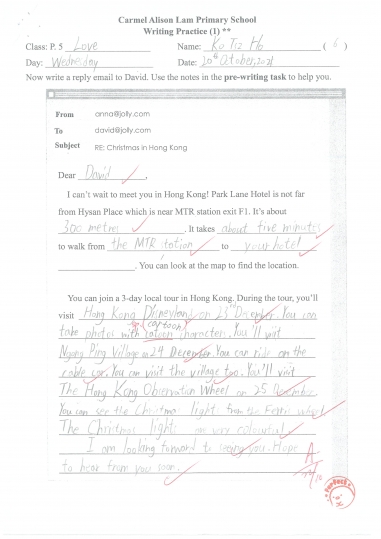 Carmel Alison Lam Primary School
Writing Practice (1) **
Class: P. 5 Love Name: Ko Tiz Ho ( 6 )
Day: Wednesday Date: 20th October, 2021
Now write a reply email to David. Use the notes in the pre-writing task to help you.
From anna@jolly.com
To david@jolly.com
Subject RE: Christmas in Hong Kong
Dear David ,
I can't wait to meet you in Hong Kong! Park Lane Hotel is not far
from Hysan Place which is near MTR station exit F1. It's about
300 metres . It takes about five minutes
to walk from the MTR station to your hotel
. You can look at the map to find the location.
You can join a 3-day local tour in Hong Kong. During the tour, you'll
visit Hong Kong Disneyland on 23rd December. You can
cartoon
take photos with characters. You'll visit
Ngong Ping Village on 24 December. You can ride on the
cable car. You can visit the village too. You'll
The Hong Kong Observation Wheel on 25 December.
You can see the Christmas light from the Ferris wheel
The Christmas light are very colourful
I am looking forward to seeing you. Hope
to hear from you soon.
A
Perfect